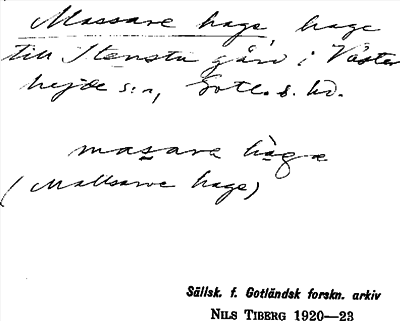 Massare hage, hage
till Stenstu gård i Väster
hejde s:n, Gotl. s. hd.
masare haga
(Mallsarve hage)
Sällsk. f. Gotländsk forskn. arkiv
NILS TIBERG 1920—23